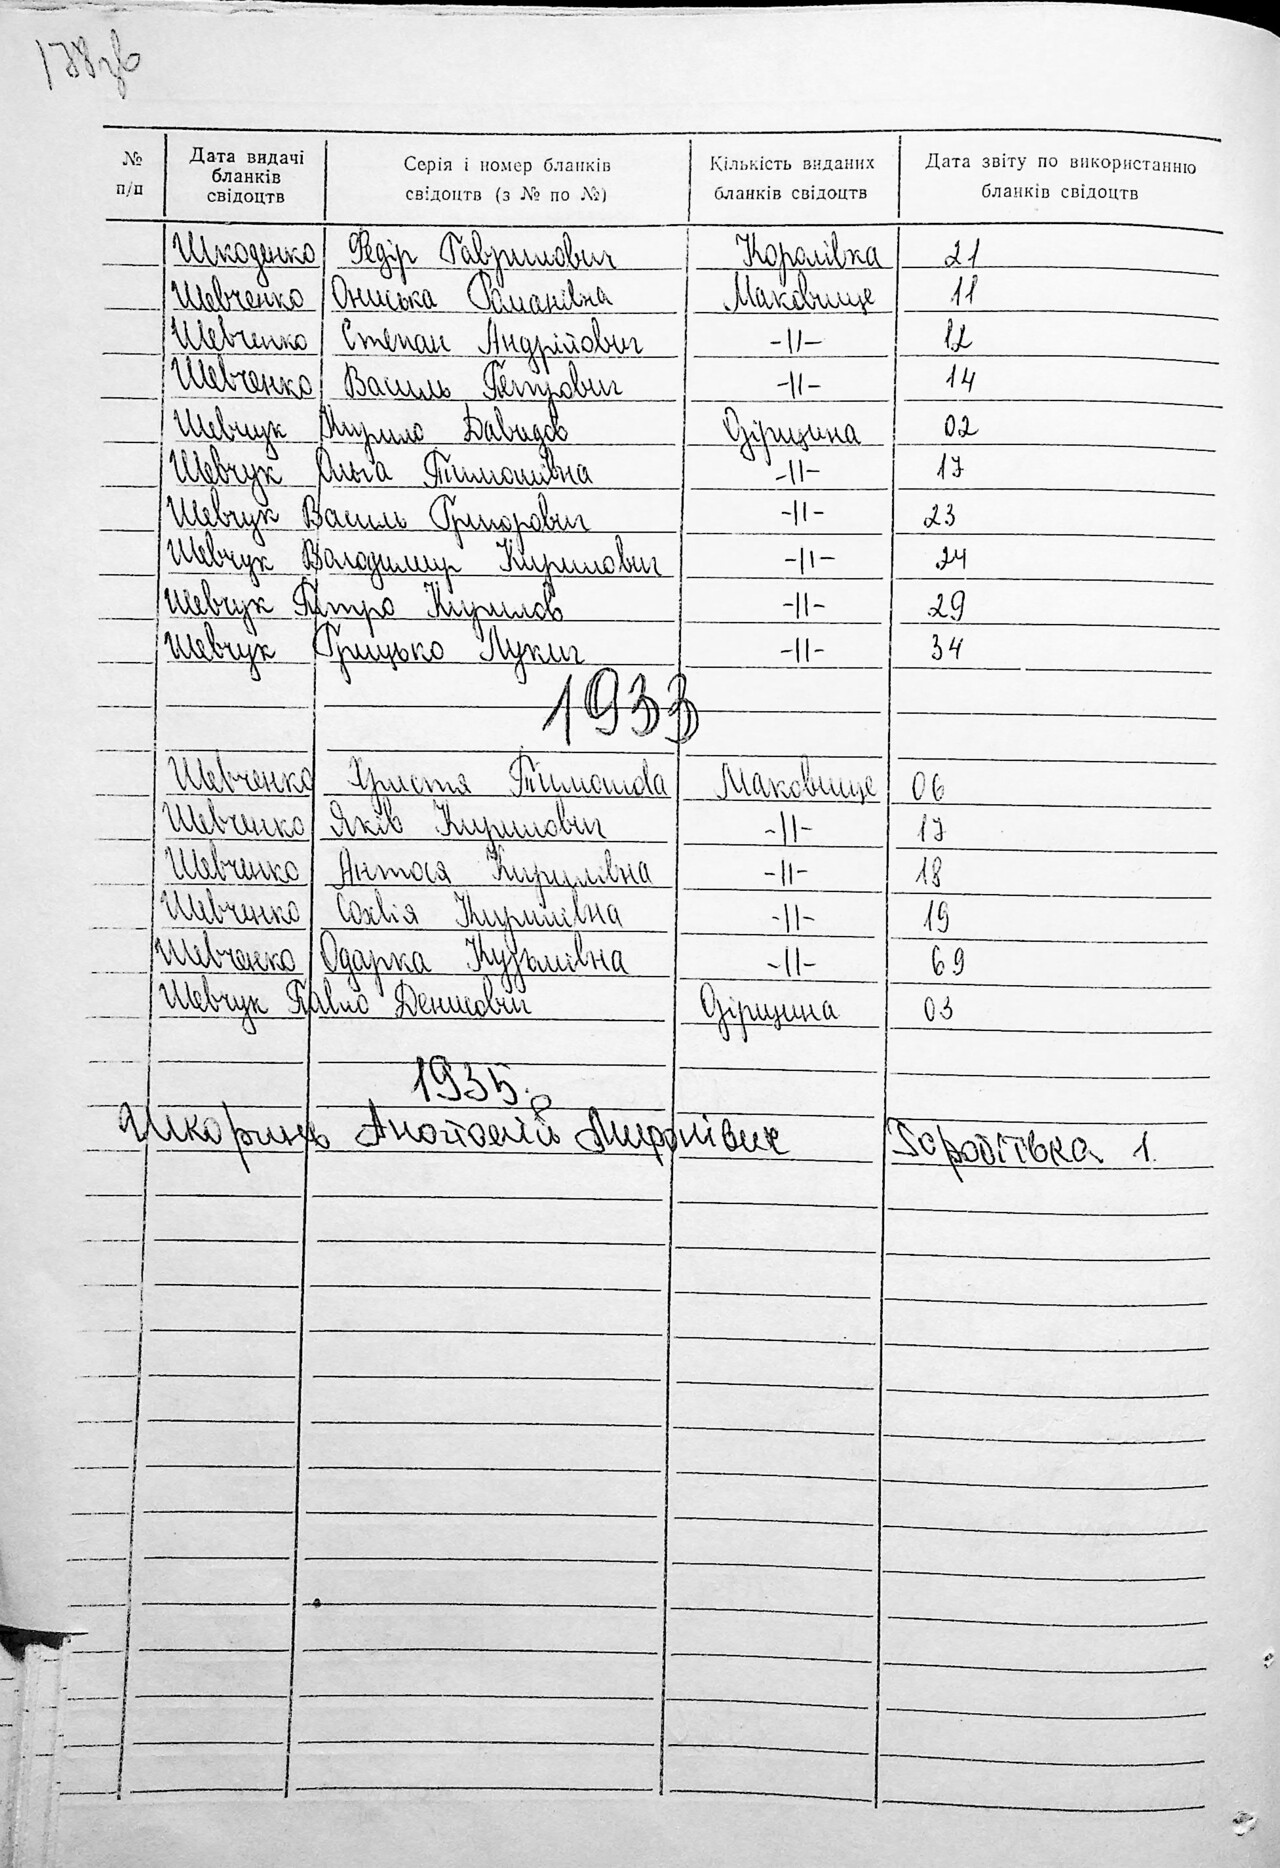 178 зв
№ п/п Дата видачі бланків свідоцтв Серія і номер бланків свідоцтв (з № по №) Кількість виданих бланків свідоцтв Дата звіту по використанню бланків свідоцтв
Шкоденко Федір Гаврилович Королівка 21
Шевченко Ониська Романівна Маковище 11
Шевченко Степан Андрійович -||- 12
Шевченко Василь Петрович -||- 14
Шевчук Кирило Давидов Юрівщина 02
Шевчук Ольга Тимошівна -||- 17
Шевчук Василь Григорович -||- 23
Шевчук Володимир Кирилович -||- 24
Шевчук Петро Кирилов -||- 29
Шевчук Грицько Лукич -||- 34
1933
Шевченко Христя Тимошова Маковище 06
Шевченко Яків Кирилович -||- 17
Шевченко Антося Кирилівна -||- 18
Шевченко Софія Кирилівна -||- 19
Шевченко Одарка Кузьмівна -||- 69
Шевчук Павло Денисович 03
1935.
Шкоринь Анатолій Миронівич 1.